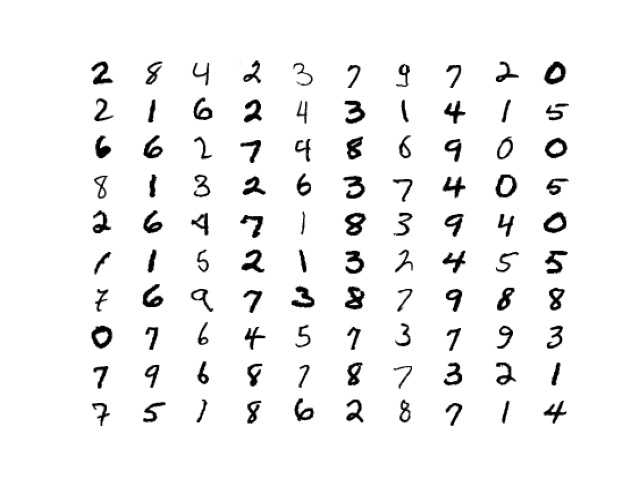 2 8 4 2 3 7 9 7 2 0
2 1 6 2 4 3 1 4 1 5
6 6 2 7 4 8 6 9 0 0
8 1 3 2 6 3 7 4 0 5
2 6 4 7 1 8 3 9 4 0
1 1 5 2 1 3 2 4 5 5
7 6 9 7 3 8 7 9 8 8
0 7 6 4 5 7 3 7 9 3
7 9 6 8 7 8 7 3 2 1
7 5 1 8 6 2 8 7 1 4